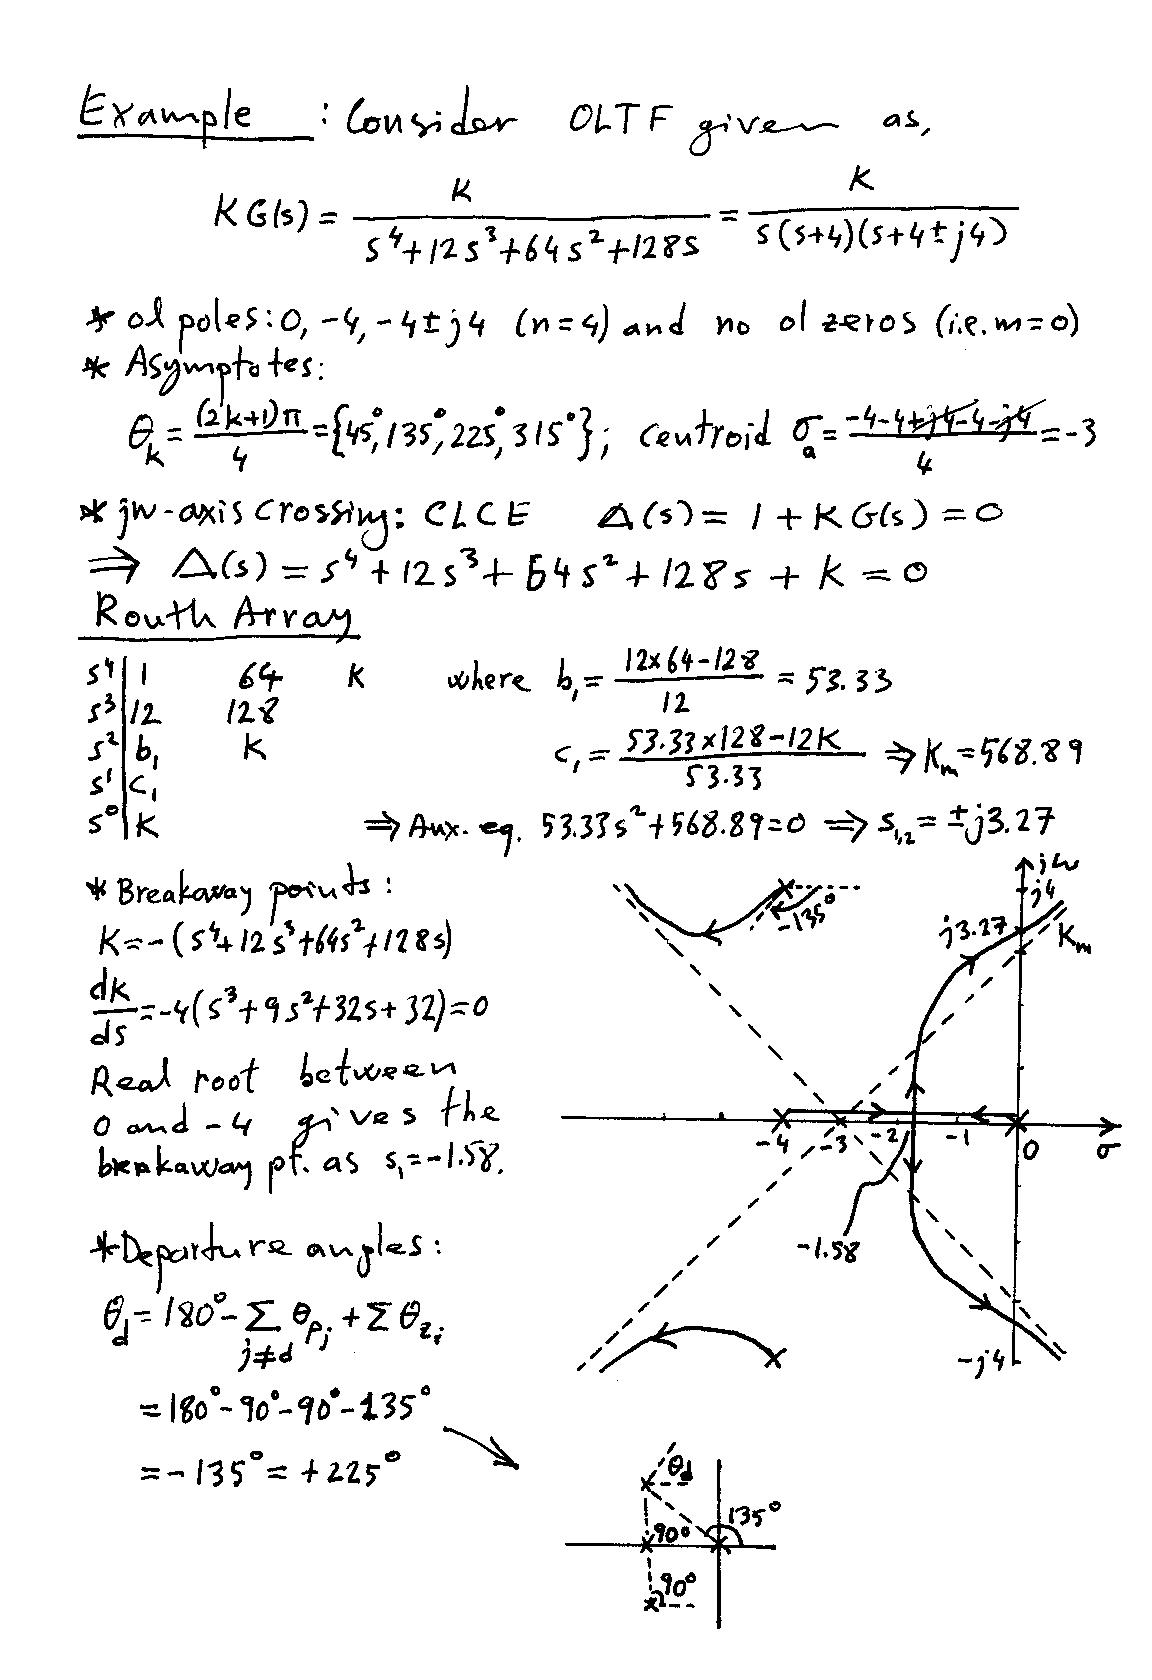 Example : Consider OLTF given as,
KG(s) = K / (s⁴+12s³+64s²+128s) = K / (s(s+4)(s+4±j4))
* ol poles: 0, -4, -4±j4 (n=4) and no ol zeros (i.e. m=0)
* Asymptotes:
θₖ = (2k+1)π / 4 = {45°, 135°, 225°, 315°}; centroid σₐ = (-4-4+j4-4-j4) / 4 = -3
* jw-axis crossing: CLCE Δ(s) = 1 + KG(s) = 0
⇒ Δ(s) = s⁴ + 12s³ + 64s² + 128s + K = 0
Routh Array
s⁴ | 1 64 K where b₁ = (12x64-128) / 12 = 53.33
s³ | 12 128
s² | b₁ K c₁ = (53.33x128-12K) / 53.33 ⇒ Kₘ = 568.89
s¹ | c₁
s⁰ | K ⇒ Aux. eq. 53.33s² + 568.89 = 0 ⇒ s₁,₂ = ±j3.27
* Breakaway points:
K = -(s⁴+12s³+64s²+128s)
dK/ds = -4(s³+9s²+32s+32) = 0
Real root between
0 and -4 gives the
breakaway pt. as s₁=-1.58.
* Departure angles:
θd = 180° - Σ_{j≠d} θpj + Σ θzi
= 180° - 90° - 90° - 135°
= -135° = +225°
jω
j4
-135°
j3.27
Kₘ
-4 -3 -2 -1 0 σ
-1.58
-j4
θd
135°
90°
90°